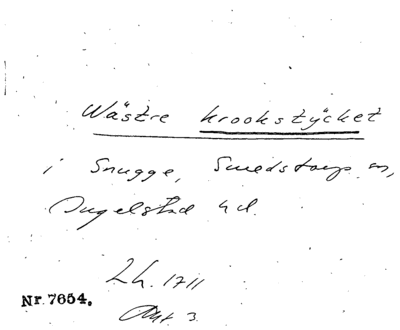 Wästre krookstÿcket
i Snugge, Smedstorps sn,
Ingelstad hd.
Lh. 1711
Akt 3
Nr. 7654.